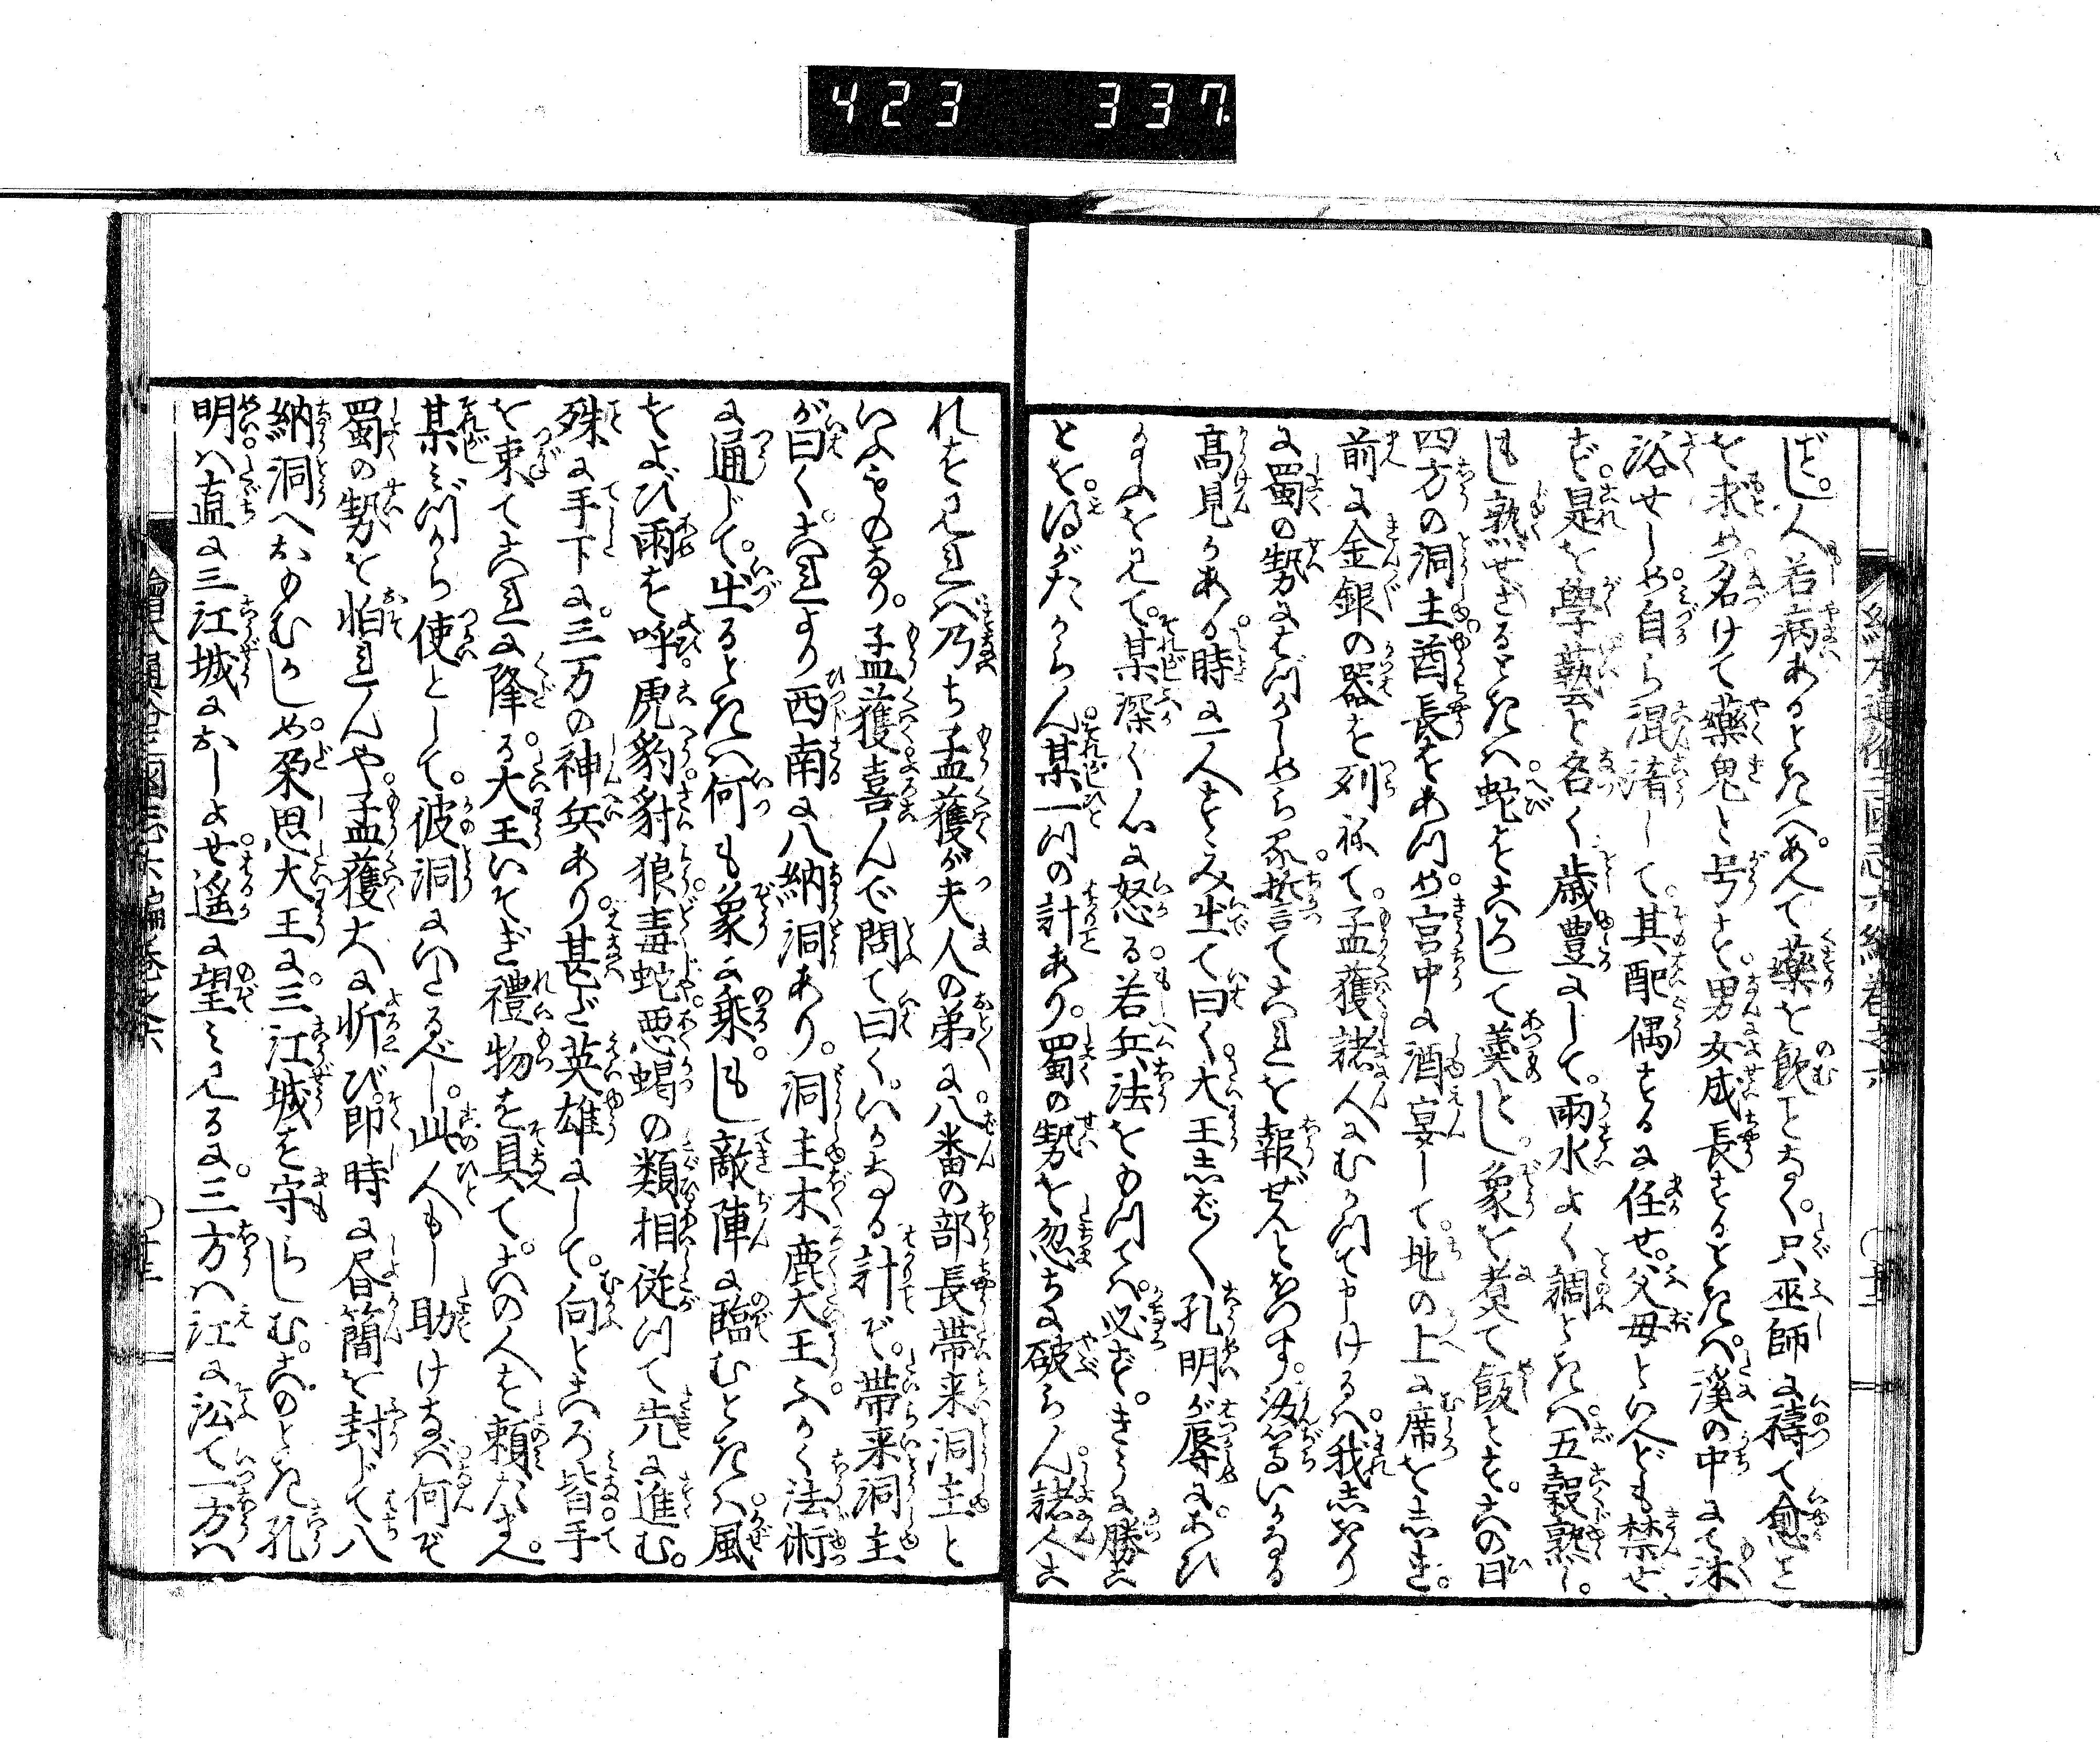 423 337
ずし。人若病あるときハあへて藥を飲ことなく。只巫師に禱て愈こと
を求め。名けて藥鬼と号す。男女成長するときハ。溪の中にて沐
浴せしめ。自ら混淆して。其配偶するに任せ。父母といへども禁ぜ
ず。是を學藝と名く歳豊にして。雨水よく調ときハ。五穀熟し。
もし熟せざるときハ。蛇をころして羹とし。象を煮て飯とす。この日
四方の洞主酋長をあつめ。宮中に酒宴して。地の上に席をしき。
前に金銀の器を列ねて。孟獲諸人にむかつて申けるハ。我しきり
に蜀の勢にはづかしめらる。誓てこれを報ぜんとおもす。汝等いかなる
高見かある。時に一人すゝみ出て曰く。大王しば〱孔明が辱にあひ
給ふを見て。某深く心に怒る。若兵法をもつてハ。必ず。きうに勝こ
とを得がたからん。某一つの計あり。蜀の勢を忽ちに破らん。諸人こ
れを見れバ乃ち孟獲が夫人の弟に八番の部長帯来洞主と
いふものなり。孟獲喜んで問て曰く。いかなる計ぞ。帯来洞主
が曰く。これより西南に八納洞あり。洞主木鹿大王ふかく法術
に通じて。出るときハ何も象に乗。もし敵陣に臨むときハ。風
をよび雨を呼。虎豹豺狼毒蛇悪蝎の類相従つて先に進む。
殊に手下に。三万の神兵あり。甚ど英雄にして。向ところ皆手
を束てこれに降る。大王いそぎ禮物を具て。この人を頼たまへ。
某ミづから使として。彼洞にいたるべし。此人もし助けなバ何ぞ
蜀の勢を怕れんや。孟獲大に忻び。即時に書簡を封じて八
納洞へおもむかしめ。朶思大王に。三江城を守らしむ。このとき孔
明ハ直に三江城におしよせ。遥に望ミ見るに。三方ハ江に沿て一方ハ